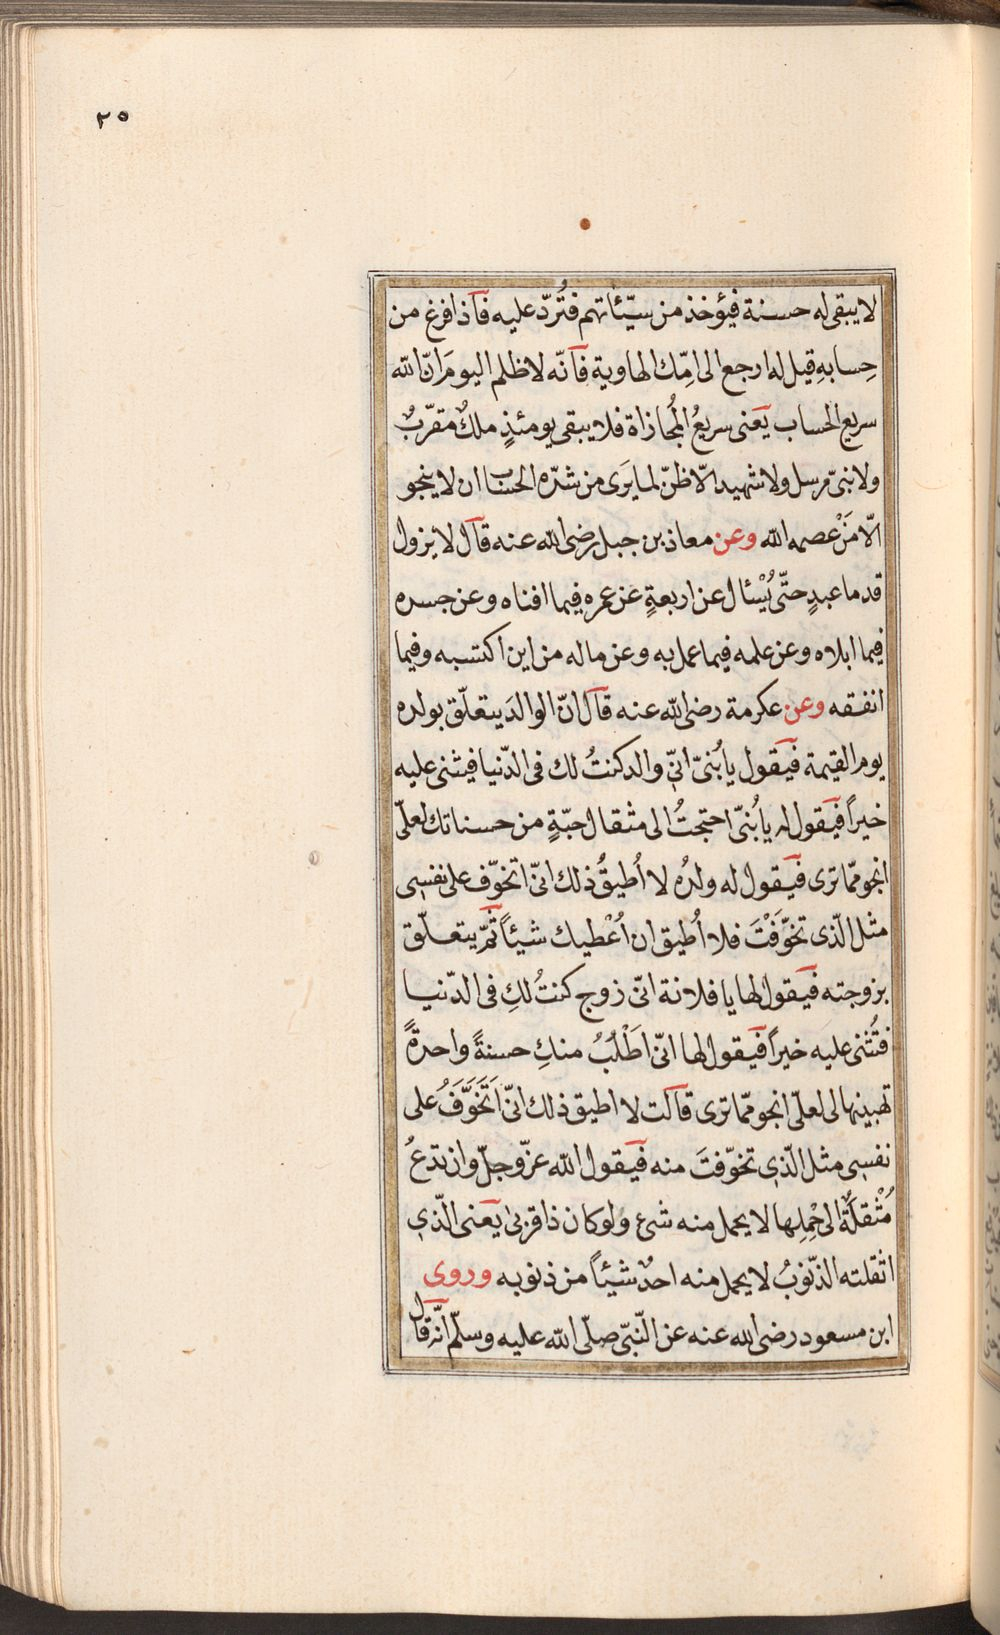 ٢٥
لا يبقى له حسنة فيؤخذ من سيّئاتهم فتُردّ عليه فاذا فرغ من
حِسابهِ قيل له ارجع الى امّك الهاوية فانّه لا ظلم اليومَ انّ الله
سريع الحساب يعنى سريعُ المُجازاة فلا يبقى يومئذٍ ملكٌ مقرّبٌ
ولا نبىّ مرسل ولا شهيد الّا ظنّ لما يَرَى من شدّه الحساب ان لا ينجو
الّا مَنْ عصمه الله وعن معاذ بن جبل رضى الله عنه قال لا يزول
قدما عبدٍ حتّى يُسْئال عن اربعةٍ عن عمره فيما افناه وعن جسده
فيما ابلاه وعن علمه فيما عمل به وعن ماله من اين اكتسبه وفيما
انفقه وعن عكرمة رضى الله عنه قال انّ الوالدَ يتعلّق بولده
يوم القيمة فيقول يا بُنىّ انّى والد كنتُ لك فى الدّنيا فيثنى عليه
خيراً فيقول له يا بُنىّ احتجتُ الى مثقال حبّةٍ من حسناتك لعلّى
انجو ممّا ترى فيقول له ولدُه لا أُطيقُ ذلك انّى اتخوّف على نفسى
مثل الّذى تخوّفْتَ فلا أُطيق ان أُعْطيك شيئاً ثمّ يتعلّق
بزوجته فيقول لها يا فلانة انّى زوج كنتُ لكِ فى الدّنيا
فتُثنى عليه خيراً فيقول لها انّى اَطْلُبُ منكِ حسنةً واحدةً
تهبينها لى لعلّى انجو ممّا ترى قالت لا اطيق ذلك انّى اَتَخَوَّفُ على
نفسى مثل الّذى تخوّفتَ منه فيقول الله عزّ وجلّ وان تدعُ
مُثْقلَةٌ الى حِملِها لا يحمل منه شئ ولو كان ذا قربىٰ يعنى الّذى
اثقلته الذّنوبُ لا يحمل منه احدٌ شيئاً من ذنوبه وروى
ابن مسعود رضى الله عنه عن النّبىّ صلّى الله عليه وسلّم انّه قال